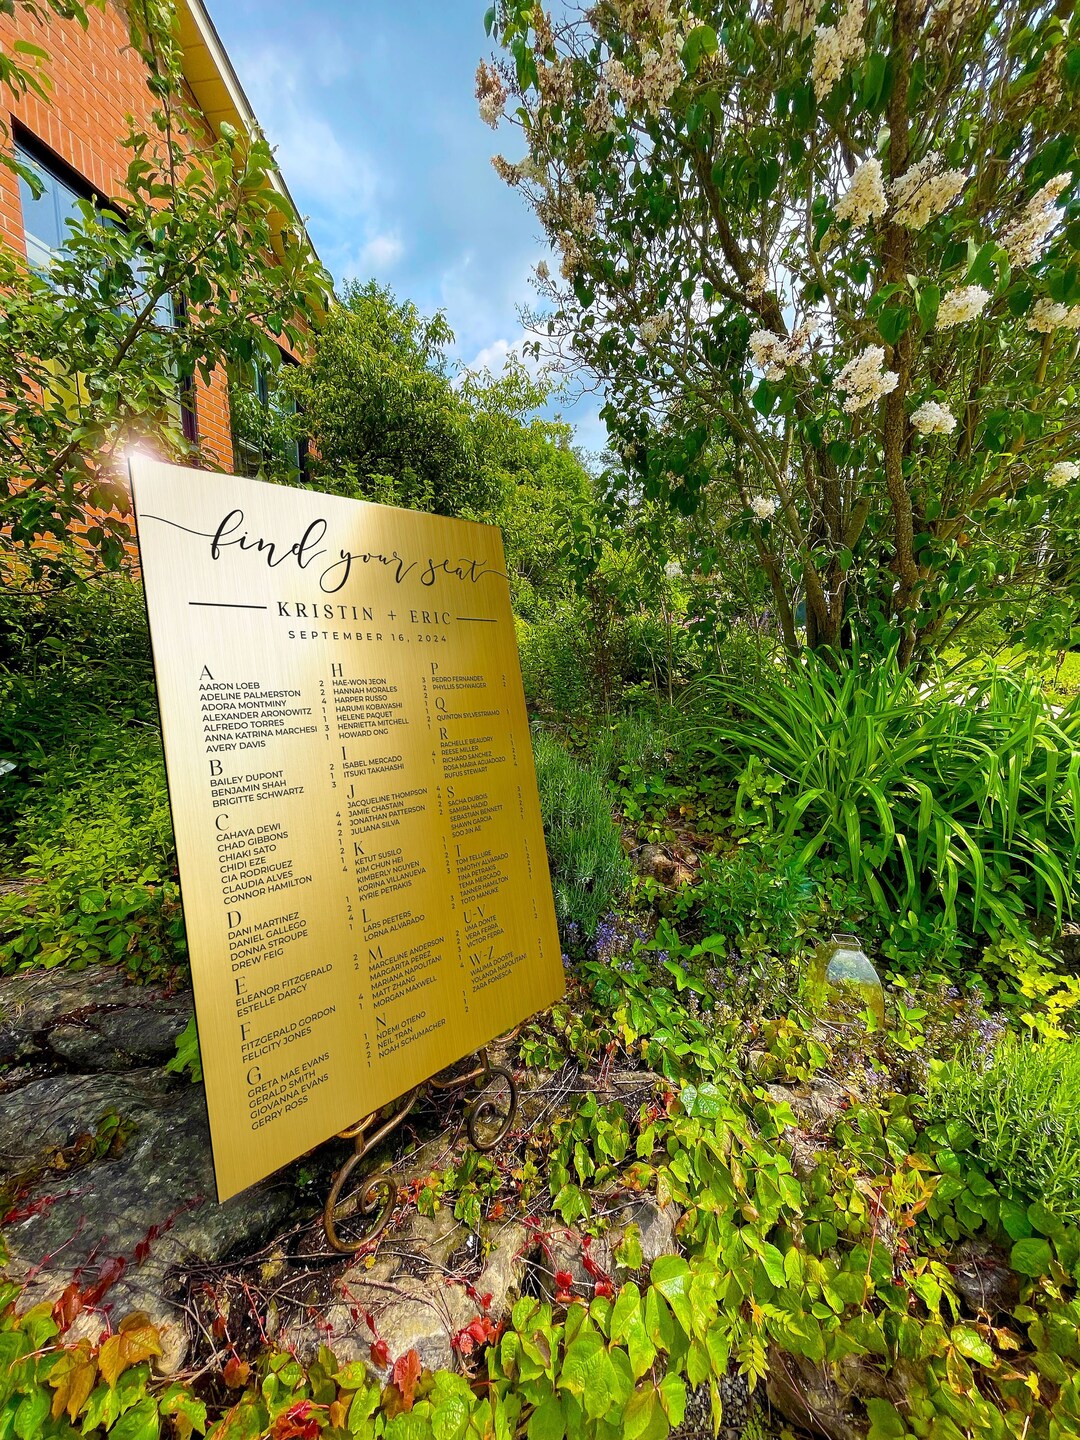 find your seat
KRISTIN + ERIC
SEPTEMBER 16, 2024
A
AARON LOEB 2
ADELINE PALMERSTON 2
ADORA MONTMINY 4
ALEXANDER ARONOWITZ 1
ALFREDO TORRES 1
ANNA KATRINA MARCHESI 3
AVERY DAVIS 1
B
BAILEY DUPONT 2
BENJAMIN SHAH 1
BRIGITTE SCHWARTZ 3
C
CAHAYA DEWI 4
CHAD GIBBONS 4
CHIAKI SATO 2
CHIDI EZE 1
CIA RODRIGUEZ 2
CLAUDIA ALVES 4
CONNOR HAMILTON 1
D
DANI MARTINEZ 1
DANIEL GALLEGO 2
DONNA STROUPE 4
DREW FEIG 1
E
ELEANOR FITZGERALD 2
ESTELLE DARCY 2
F
FITZGERALD GORDON 4
FELICITY JONES 1
G
GRETA MAE EVANS 1
GERALD SMITH 2
GIOVANNA EVANS 2
GERRY ROSS 1
H
HAE-WON JEON 3
HANNAH MORALES 2
HARPER RUSSO 2
HARUMI KOBAYASHI 1
HELENE PAQUET 1
HENRIETTA MITCHELL 2
HOWARD ONG 1
I
ISABEL MERCADO 4
ITSUKI TAKAHASHI 1
J
JACQUELINE THOMPSON 4
JAMIE CHASTAIN 3
JONATHAN PATTERSON 2
JULIANA SILVA 2
K
KETUT SUSILO 1
KIM CHUN HEI 1
KIMBERLY NGUYEN 2
KORINA VILLANUEVA 2
KYRIE PETRAKIS 3
L
LARS PEETERS 3
LORNA ALVARADO 2
M
MARCELINE ANDERSON 2
MARGARITA PEREZ 2
MARIANA NAPOLITANI 3
MATT ZHANG 1
MORGAN MAXWELL 4
N
NOEMI OTIENO 1
NEIL TRAN 1
NOAH SCHUMACHER 2
P
PEDRO FERNANDES 2
PHYLLIS SCHWAIGER 1
Q
QUINTON SYLVESTRAMO
R
RACHELLE BEAUDRY
REESE MILLER
RICHARD SANCHEZ
ROSA MARIA AGUADOZO
RUFUS STEWART
S
SACHA DUBOIS
SAMIRA HADID
SEBASTIAN BENNETT
SHAWN GARCIA
SOO JIN AE
T
TOM TELLURE
TIMOTHY ALVARADO
TINA PETRAKIS
TEMA MERCADO
TANNER HAMILTON
TOTO MANUKE
U-V
UMA DONTE
VERA FERRA
VICTOR FERRA
W-Z
WALIMA DOOSTE
YOLANDA NAPOLITANI
ZARA FONESCA